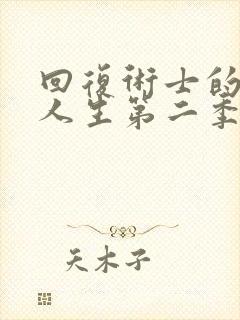 回復術士的
人生第二季
天木子